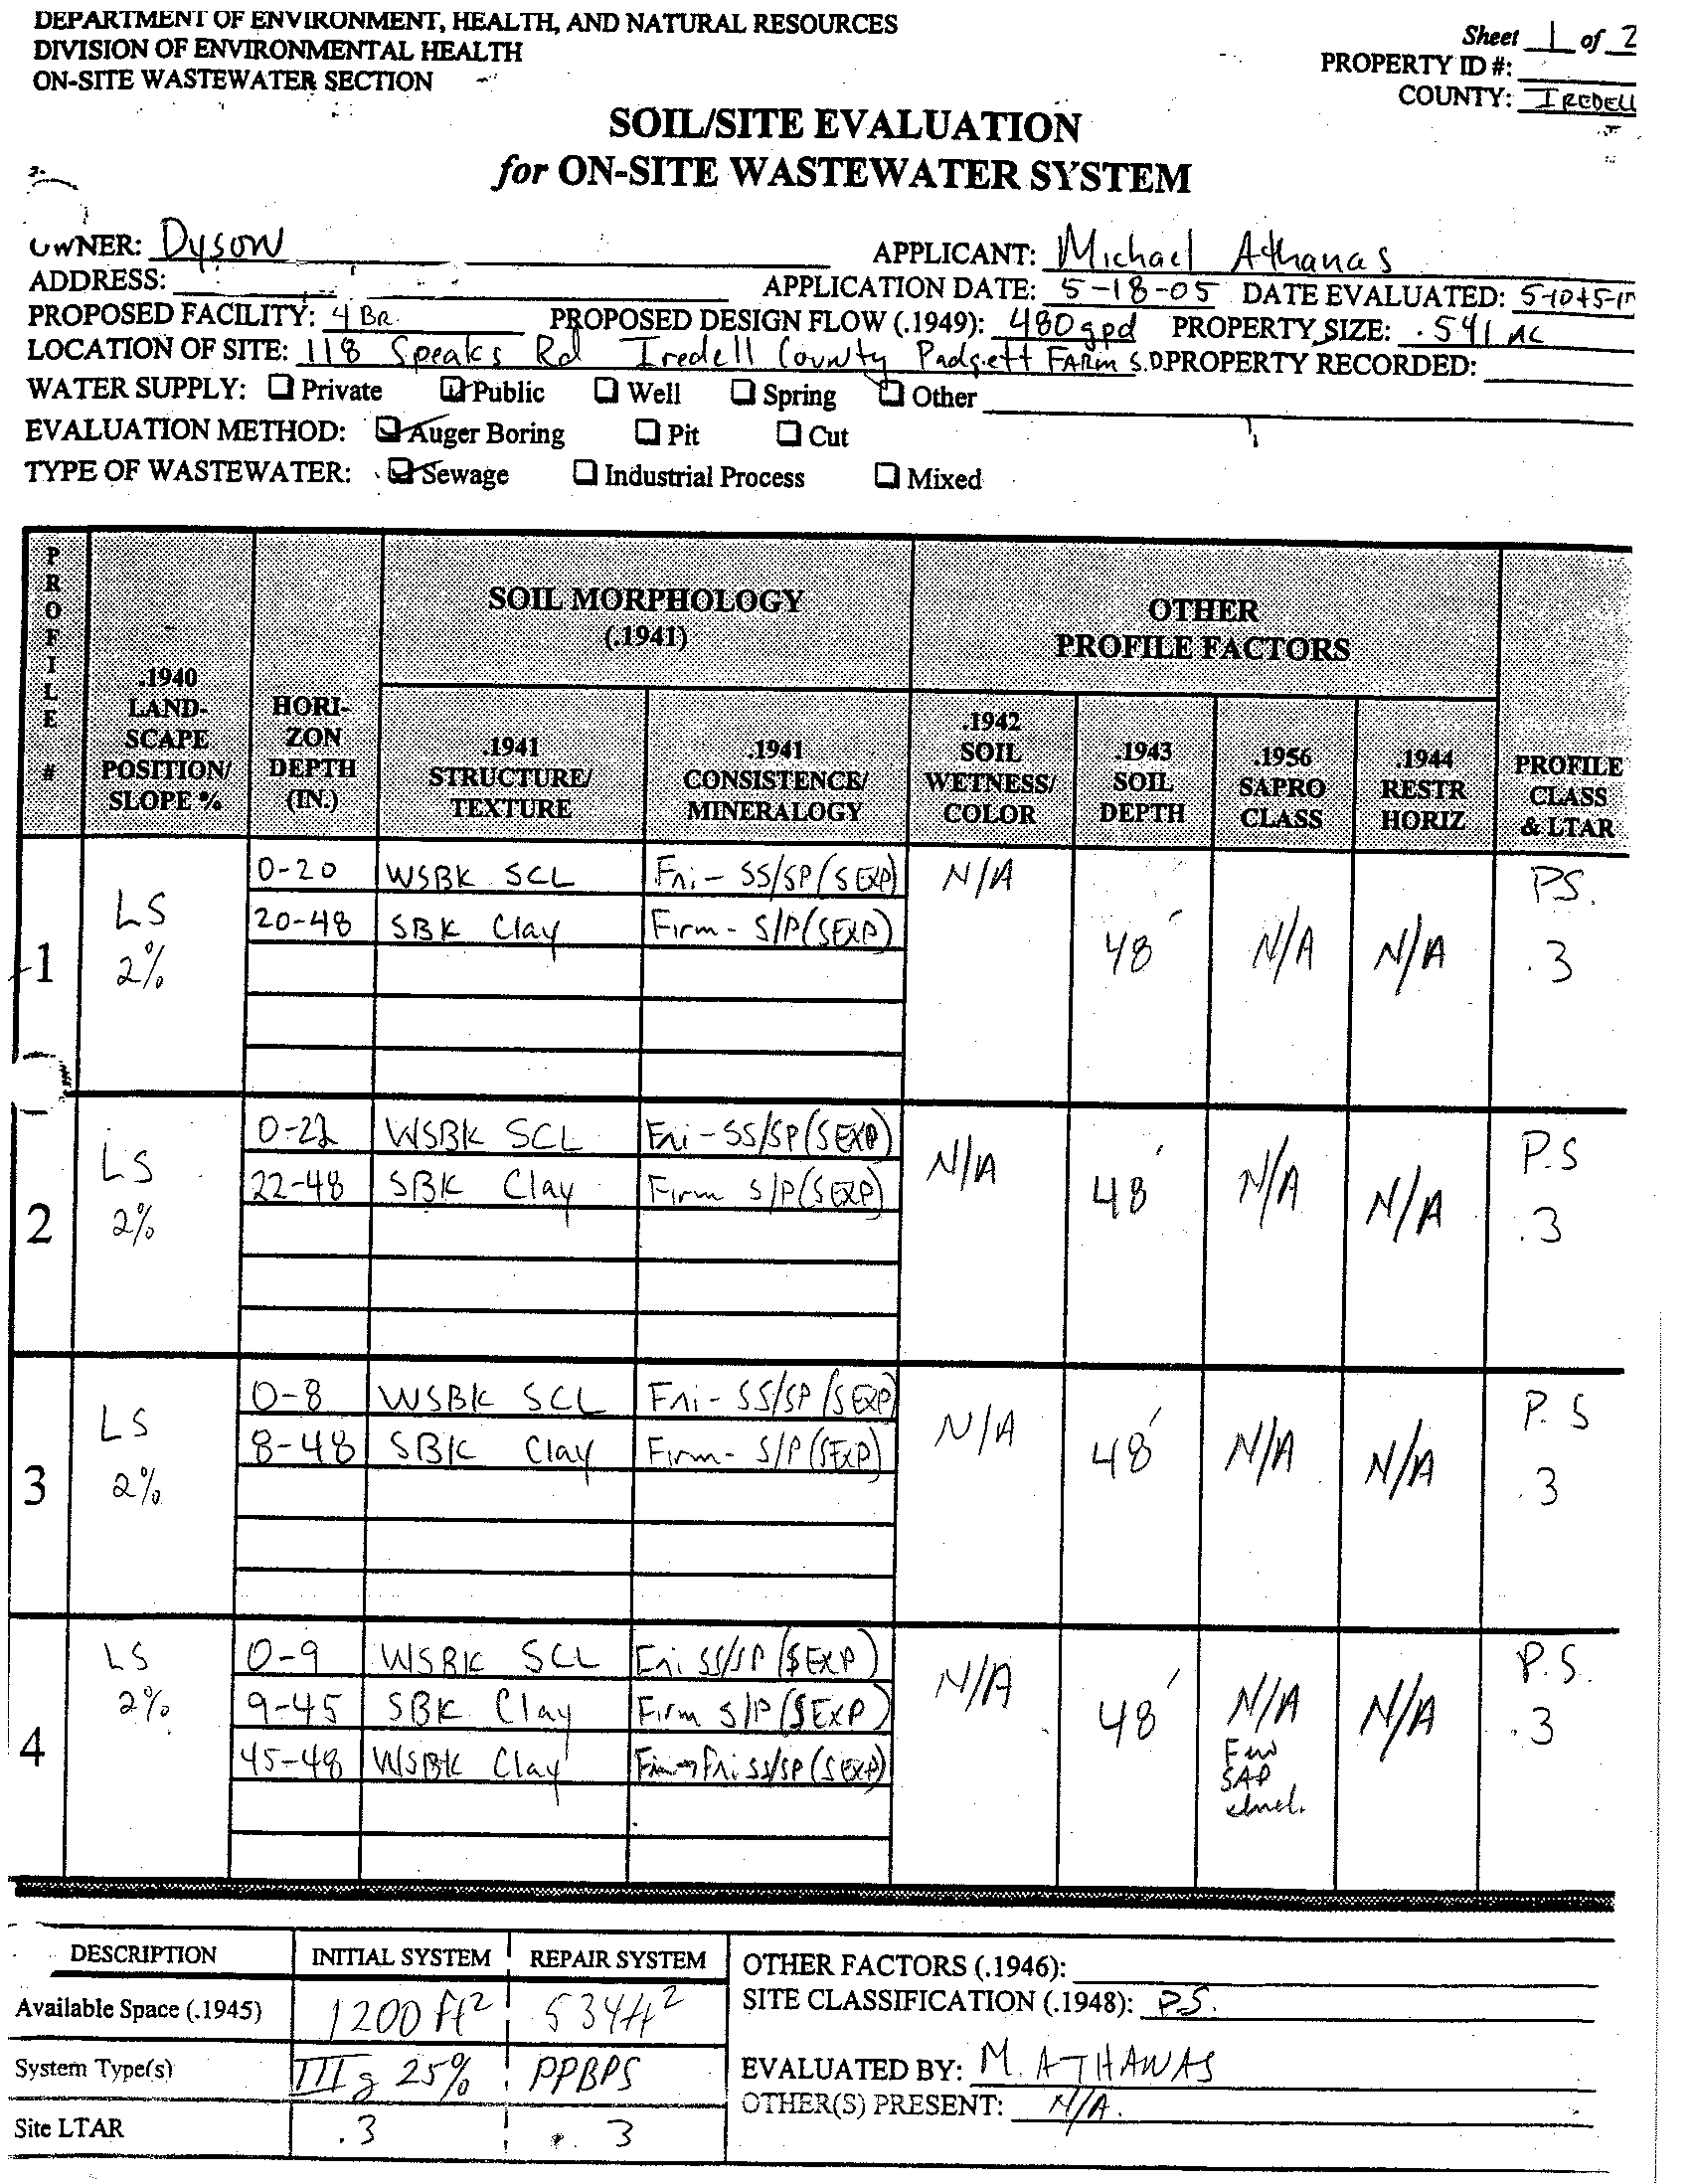 DEPARTMENT OF ENVIRONMENT, HEALTH, AND NATURAL RESOURCES
DIVISION OF ENVIRONMENTAL HEALTH
ON-SITE WASTEWATER SECTION
Sheet 1 of 2
PROPERTY ID #:
COUNTY: IREDELL
SOIL/SITE EVALUATION
for ON-SITE WASTEWATER SYSTEM
OWNER: Dyson APPLICANT: Michael Athanas
ADDRESS: APPLICATION DATE: 5-18-05 DATE EVALUATED: 5-10+5-1
PROPOSED FACILITY: 4 BR. PROPOSED DESIGN FLOW (.1949): 480 gpd PROPERTY SIZE: .541 AC
LOCATION OF SITE: 118 Speaks Rd Iredell County Padgett FARM S.D. PROPERTY RECORDED:
WATER SUPPLY: Private Public Well Spring Other
EVALUATION METHOD: Auger Boring Pit Cut
TYPE OF WASTEWATER: Sewage Industrial Process Mixed
PROFILE #
.1940 LAND-SCAPE POSITION/ SLOPE %
HORI-ZON DEPTH (IN.)
SOIL MORPHOLOGY (.1941)
.1941 STRUCTURE/ TEXTURE
.1941 CONSISTENCE/ MINERALOGY
OTHER PROFILE FACTORS
.1942 SOIL WETNESS/ COLOR
.1943 SOIL DEPTH
.1956 SAPRO CLASS
.1944 RESTR HORIZ
PROFILE CLASS & LTAR
1 LS 2%
0-20 WSBK SCL Fri- SS/SP (SEXP)
20-48 SBK Clay Firm- S/P (SEXP)
N/A 48 N/A N/A PS. .3
2 LS 2%
0-22 WSBK SCL Fri- SS/SP (SEXP)
22-48 SBK Clay Firm S/P (SEXP)
N/A 48 N/A N/A P.S .3
3 LS 2%
0-8 WSBK SCL Fri- SS/SP (SEXP)
8-48 SBK Clay Firm- S/P (SEXP)
N/A 48 N/A N/A P.S .3
4 LS 2%
0-9 WSBK SCL Fri SS/SP (SEXP)
9-45 SBK Clay Firm S/P (SEXP)
45-48 WSBK Clay Fri SS/SP (SEXP)
N/A 48 N/A Few SAP N/A P.S. .3
DESCRIPTION INITIAL SYSTEM REPAIR SYSTEM
Available Space (.1945) 1200 ft² 534 ft²
System Type(s) III g 25% PPBPS
Site LTAR .3 .3
OTHER FACTORS (.1946):
SITE CLASSIFICATION (.1948): P.S.
EVALUATED BY: M. ATHANAS
OTHER(S) PRESENT: N/A.